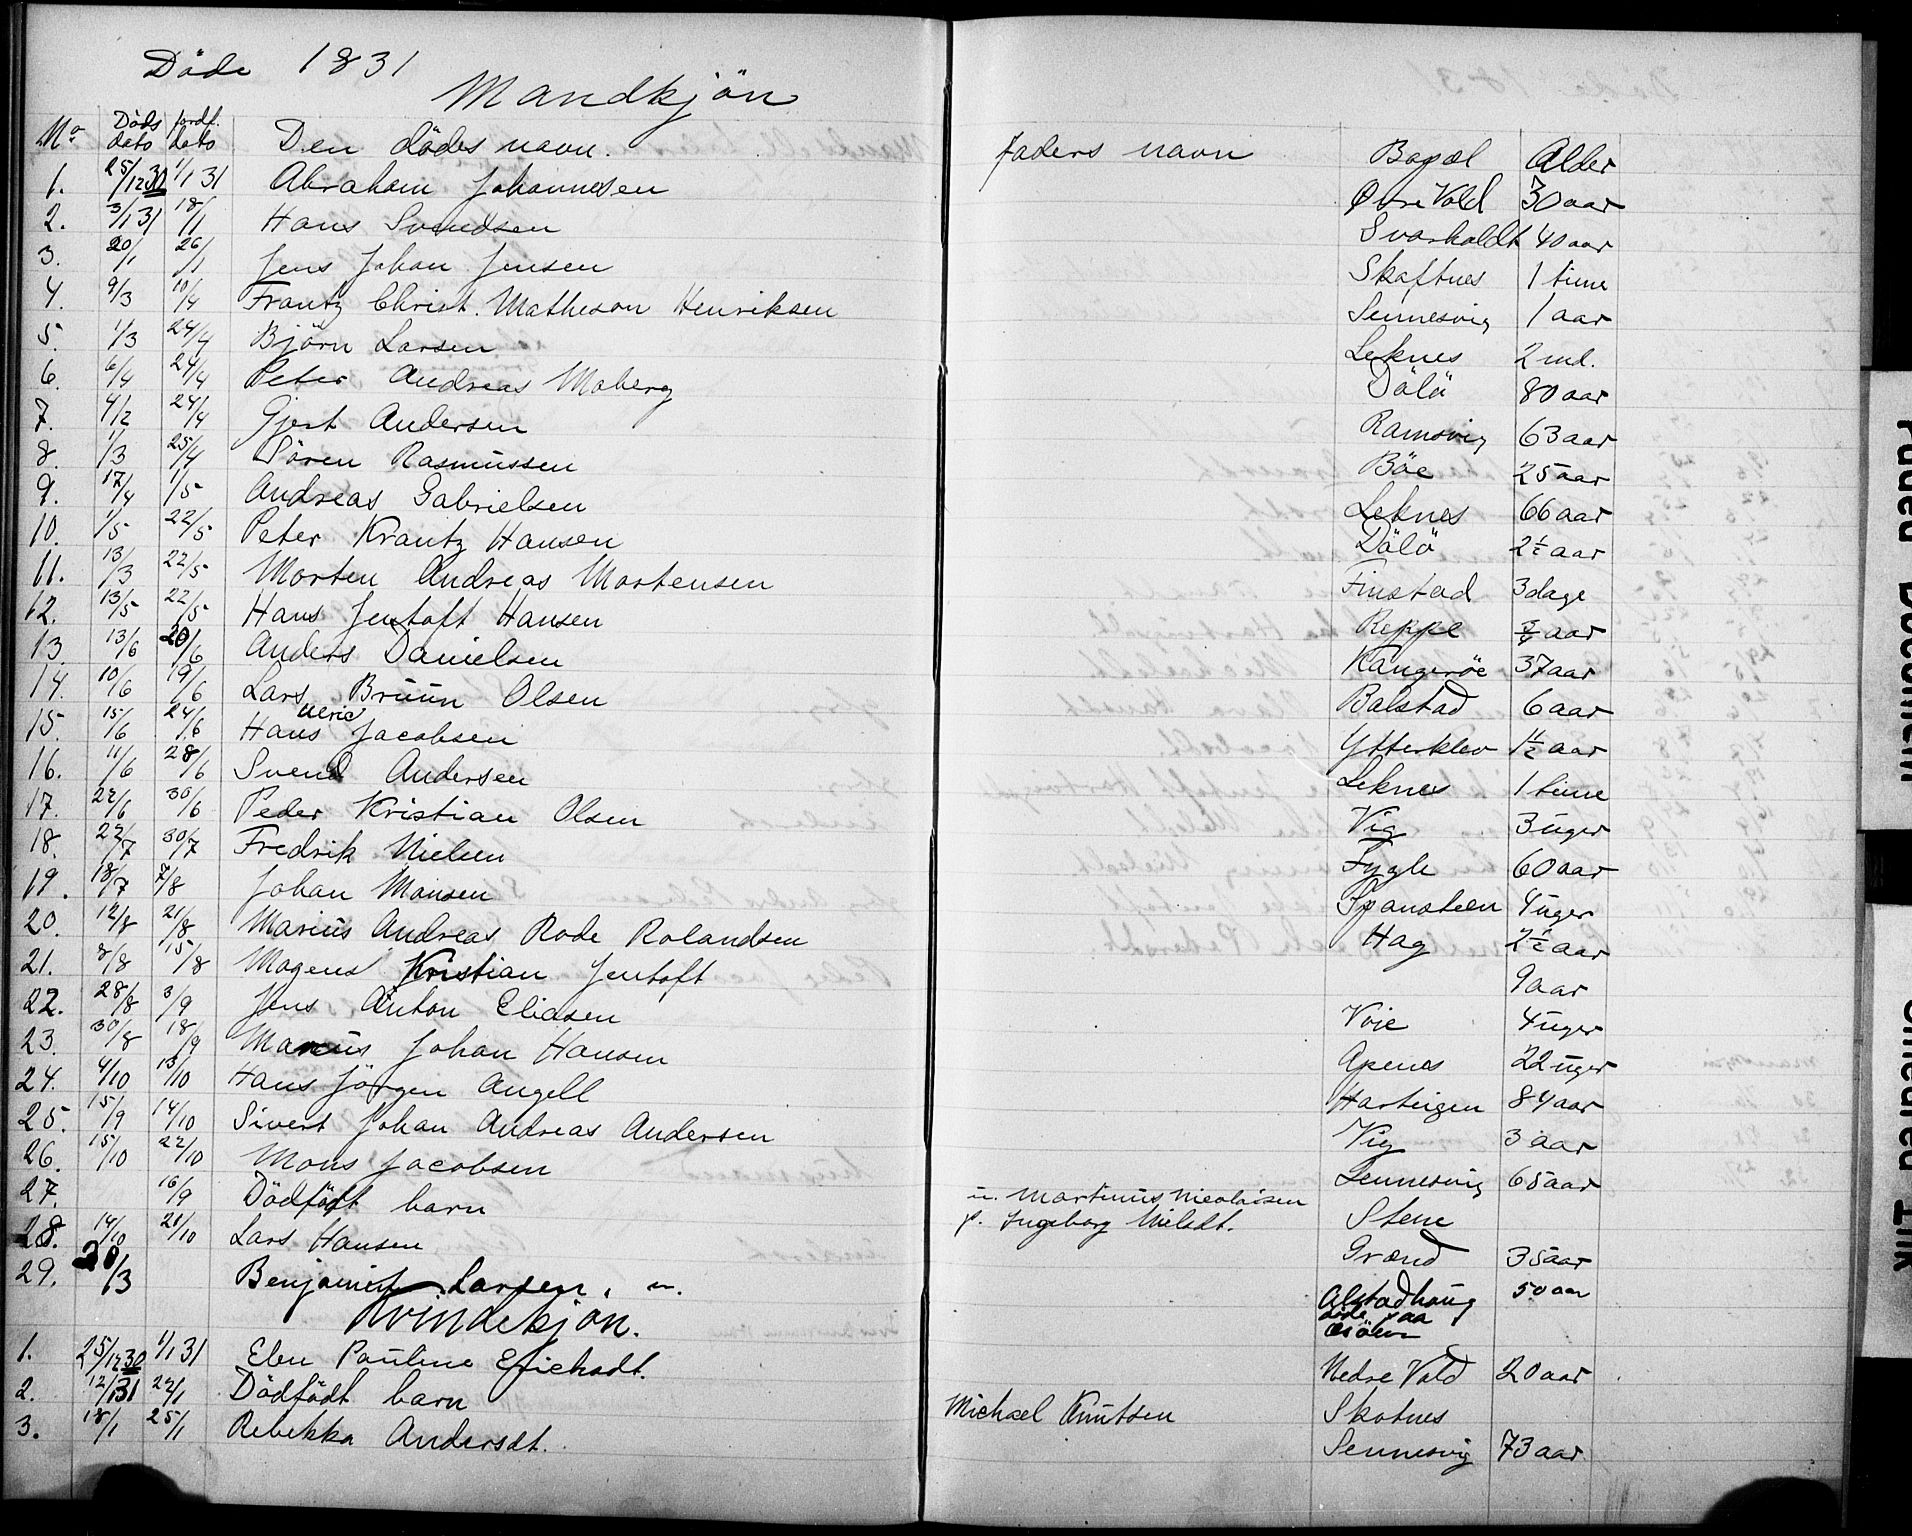 Döde 1831
Mandkjön
No Döds dato Jordf. dato Den dödes navn. Faders navn Bopæl Alder
1. 25/12 30 1/1 31 Abraham Johannesen Øvre Vold 30 aar
2. 3/1 31 18/1 Hans Svendsen Svarholdt 40 aar
3. 20/1 26/1 Jens Johan Jensen Skaftnes 1 time
4. 9/3 10/4 Frantz Christ. Matheson Henriksen Sennesvig 1 aar
5. 1/3 24/4 Björn Larsen Leknes 2 md.
6. 6/4 24/4 Peter Andreas Moberg Dölö 80 aar
7. 4/2 24/4 Gjert Andersen Ramsvig 63 aar
8. 1/3 25/4 Sören Rasmussen Böe 25 aar
9. 17/4 1/5 Andreas Gabrielsen Leknes 66 aar
10. 1/5 22/5 Peter Krantz Hansen Dölö 2 1/2 aar
11. 13/3 22/5 Morten Andreas Mortensen Finstad 3 dage
12. 13/5 22/5 Hans Jentoft Hansen Reppe 3/4 aar
13 13/6 20/6 Anders Danielsen Kangeröe 37 aar
14. 10/6 19/6 Lars Brüün Olsen Balstad 6 aar
15. 15/6 24/6 Hans Ulric Jacobsen Ytterklev 1 1/2 aar
16. 11/6 28/6 Svend Andersen Leknes 1 time
17. 22/6 30/6 Peder Kristian Olsen Vig 3 üger
18. 22/7 30/7 Fredrik Nielsen Fygle 60 aar
19. 18/7 7/8 Johan Monsen Spansteen 4 üger
20. 12/8 21/8 Mariüs Andreas Rode Rolandsen Hag 2 1/2 aar
21. 8/8 15/8 Mogens Kristian Jentoft 9 aar
22. 28/8 3/9 Jens Anton Eliasen Voie 4 üger
23. 30/8 18/9 Marcüs Johan Hansen Apenes 22 üger
24. 4/10 13/10 Hans Jörgen Angell Harteigen 84 aar
25. 15/9 14/10 Sivert Johan Andreas Andersen Vig 3 aar
26. 15/10 22/10 Mons Jacobsen Sennesvig 65 aar
27. 16/9 Dödfödt barn u. Martinus Nicolaisen
p. Ingeborg Nielsdt. Stene
28. 14/10 21/10 Lars Hansen Grænd 35 aar
29. 20/3 Benjamin Larsen. Alstadhoüg 50 aar
döde paa
Kvindekjön.
1. 25/12 30 1/1 31 Elen Paüline Erichsdt. Nedre Vold 20 aar
2. 12/1 31 22/1 Dödfödt barn Michael Knütsen Skotnes
3. 18/1 25/1 Rebekka Andersdt. Sennesvig 73 aar